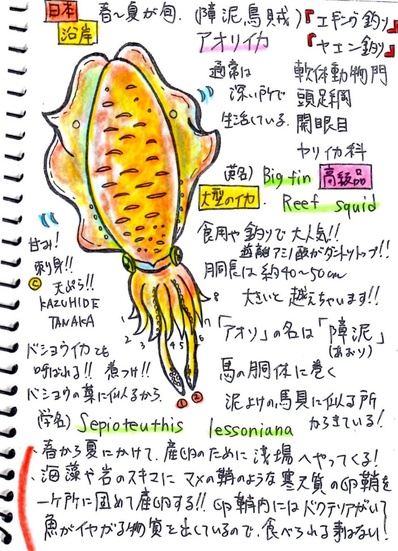 日本 春〜夏が旬.(障泥烏賊)『エギング釣り』
沿岸
アオリイカ
『ヤエン釣り』
通常は
深い所で
生活している.
軟体動物門
頭足綱
開眼目
ヤリイカ科
(英名) Big fin 高級品
大型のイカ. Reef squid
食用や釣りで大人気!!
遊離アミノ酸がダントツトップ!!
胴長は約40〜50cm
大きいと越えちゃいます!!
甘み!
刺身!!
天ぷら!!
© KAZUHIDE
TANAKA
1 2 3 4 5 8
① ②
「アオリ」の名は「障泥」
(あおり)
馬の胴体に巻く
泥よけの馬具に似る所
からきている!
ドショウイカとも
呼ばれる!! 煮つけ!!
バショウの葉に似るから.
(学名) Sepioteuthis lessoniana
・春から夏にかけて、産卵のために浅場へやってくる!
・海藻や岩のスキマにマメの鞘のような寒天質の卵鞘を
一ヶ所に固めて産卵する!! 卵鞘内にはバクテリアがいて
魚がイヤがる物質を出しているので、食べられる事はない!